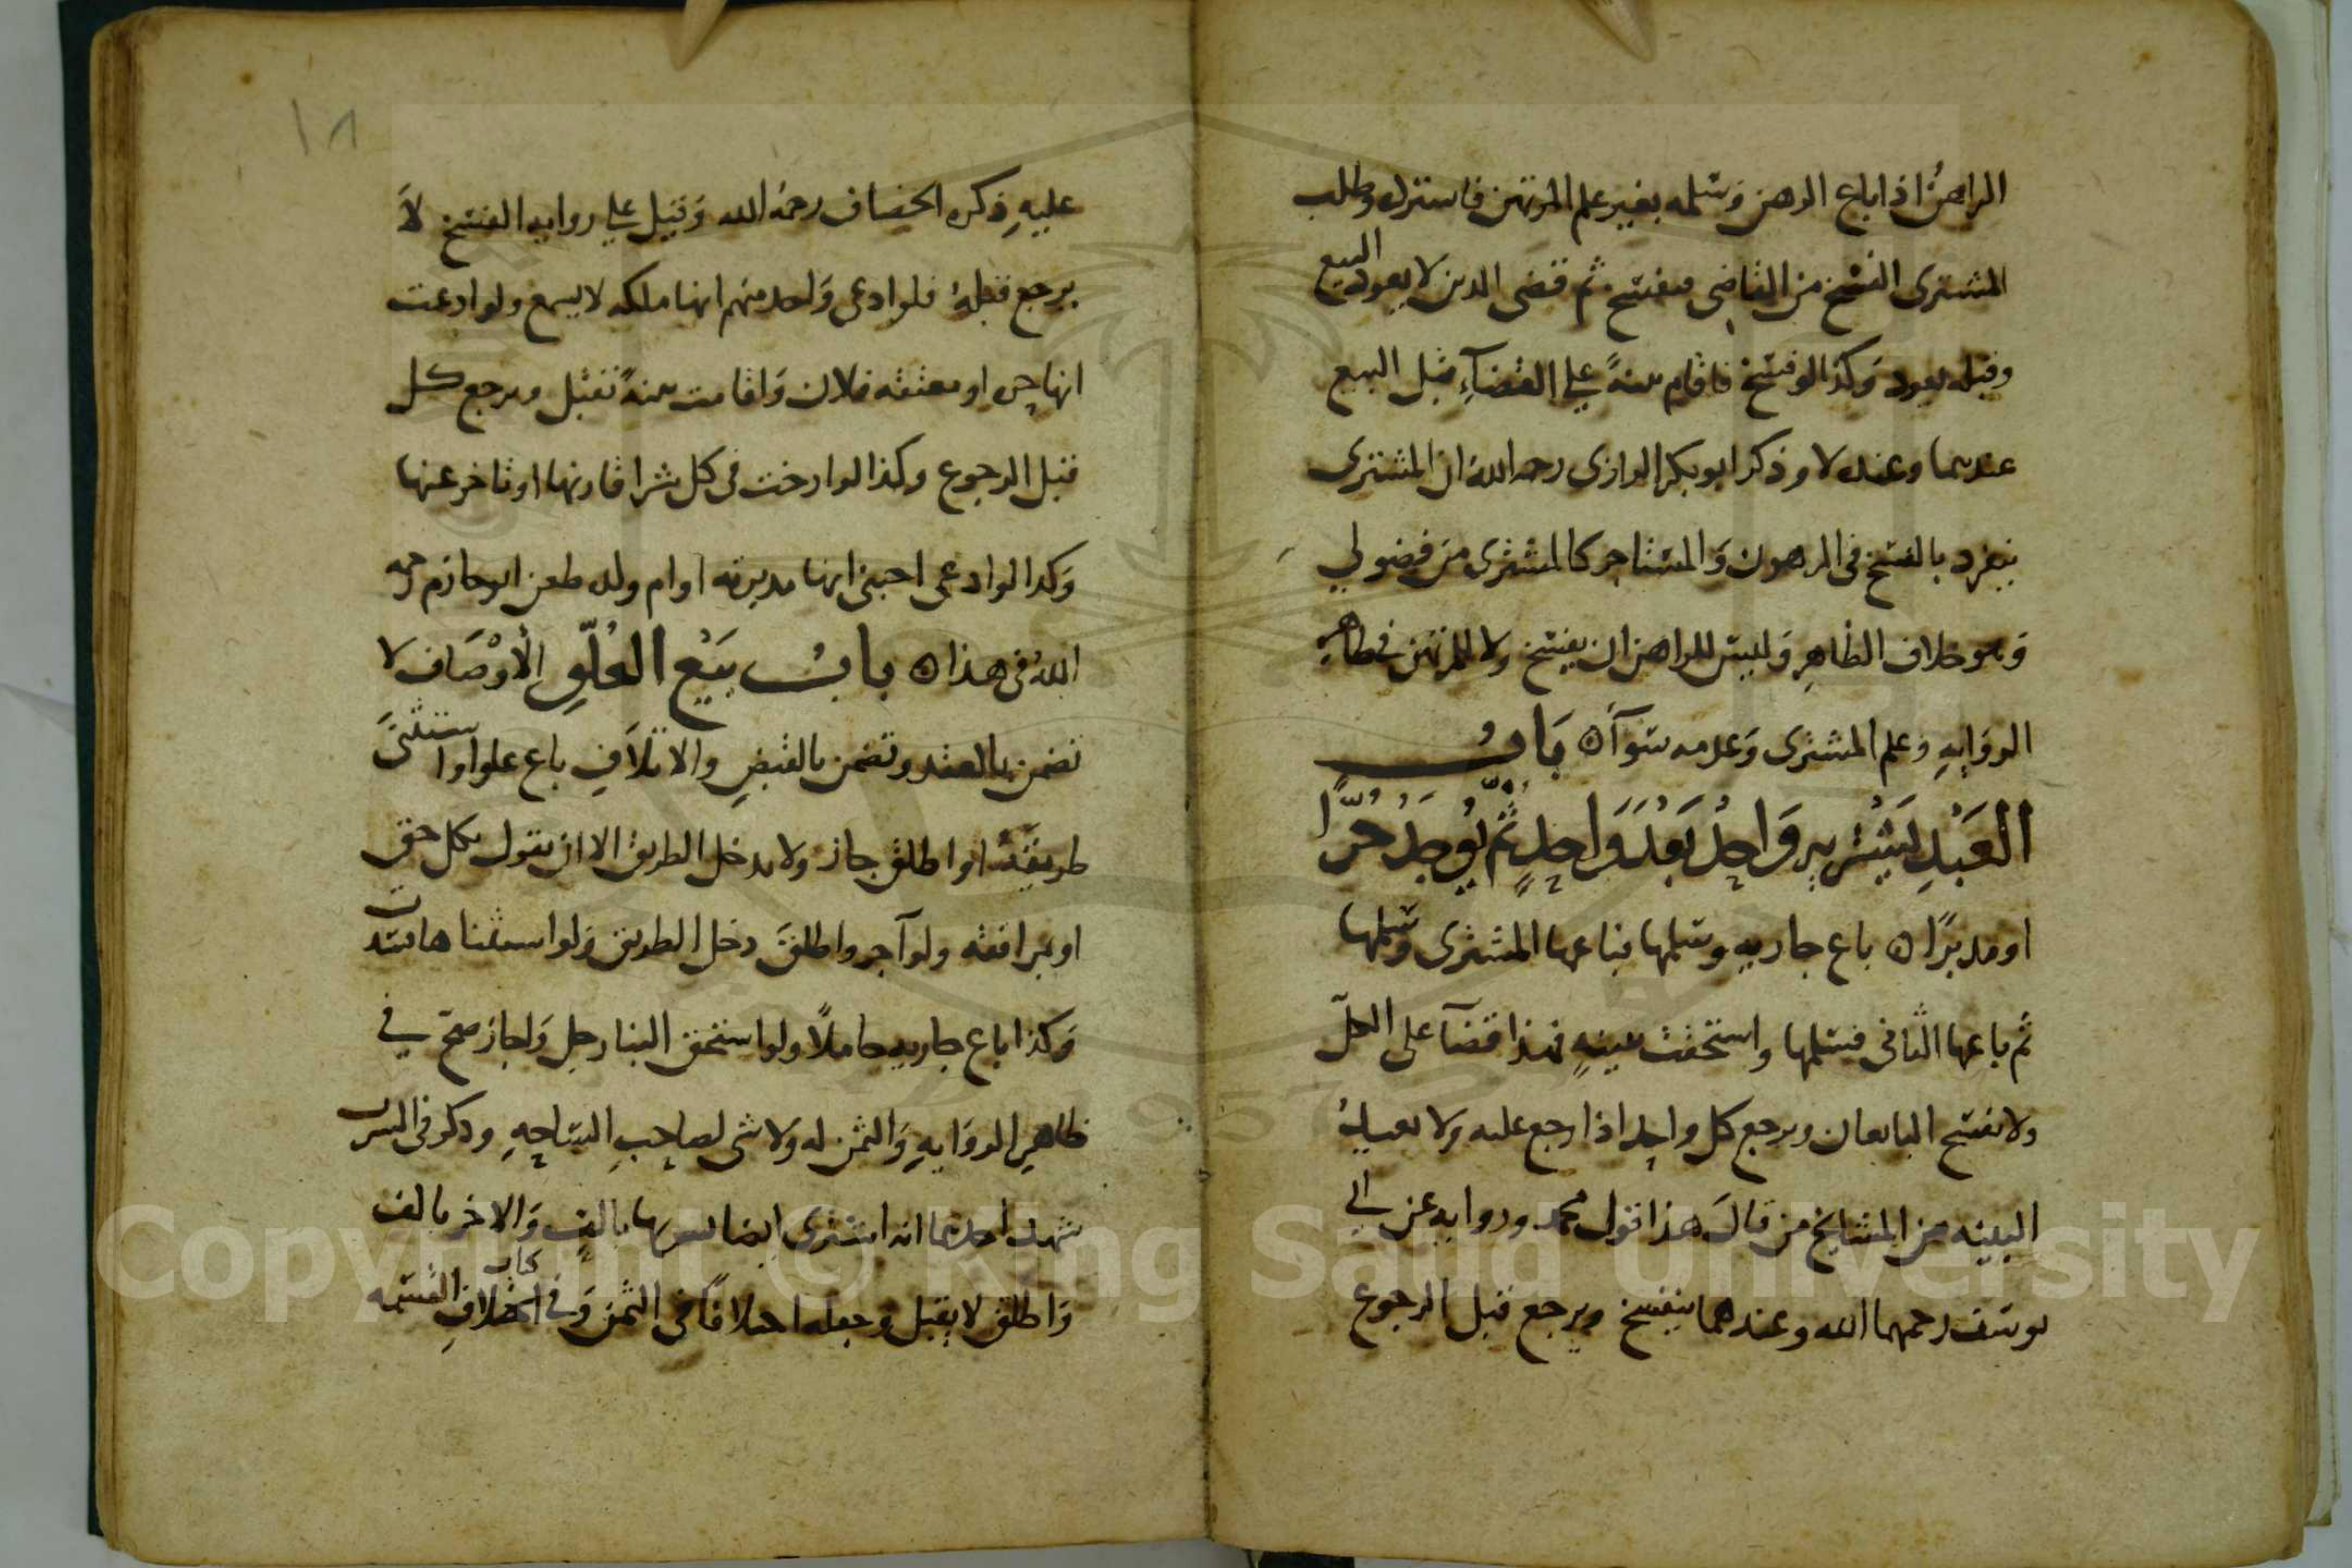 الراهن اذا باع الرهن وسلمه بغير علم المرتهن فاسترك وطلب
المشترى الفسخ من القاضى ففسخ ثم قضى الدين لا يعود البيع
وقبله يعود وكذا لو فسخ فاقام بينة على القضآء قبل البيع
عندهما وعنده لا وذكر ابو بكر الرازى رحمه الله ان المشترى
ينفرد بالفسخ فى المرهون والمستاجر كالمشترى من فضولي
وهو خلاف الظاهر وليس للراهن ان يفسخ ولا للمرتهن فى ظاهر
الرواية وعلم المشترى وعدمه سوآء باب
العبد يشتريه واحد بعد واحد ثم يوجد حرا
او مدبرا باع جارية وسلمها فباعها المشترى وسلمها
ثم باعها الثانى فسلمها واستحقت ببينة فهذا قضآ على الكل
ولا يفسخ البائعان ويرجع كل واحد اذا رجع عليه ولا يعيد
البينه من المشايخ من قال هذا قول محمد وروايه عن ابي
يوسف رحمهما الله وعندهما ينفسخ ويرجع قبل الرجوع
١٨
عليه ذكره الخصاف رحمه الله وقيل على روايه الفسخ لا
يرجع قبله فلو ادعى واحد منهم انها ملكه لا يسمع ولو ادعت
انها حره او معتقه فلان واقامت بينة تقبل ويرجع كل
قبل الرجوع وكذا لو ارخت فى كل شرا قارنها او تاخر عنها
وكذا لو ادعى اجنبى انها مدبرته او ام ولد طعن ابو حازم رحمه
الله فى هذا باب بيع العلو الاوصاف لا
تضمن بالعقد وتضمن بالقبض والاتلاف باع علوا واستثنى
طريقه او اطلق جاز ولا يدخل الطريق الا ان يقول بكل حق
او بمرافقه ولو آجر واطلق دخل الطريق ولو استثناها فسدت
وكذا باع جاريه حاملا ولو استحق البنا رجل واجاز صح في
ظاهر الروايه والثمن له ولا شى لصاحب الساحه وذكر فى
شهد احدهما انه اشترى ارضا بالف والاخر بالف
واطلق لا يقبل وجعله اختلافا فى الثمن وفى كتاب اختلاف القسمه